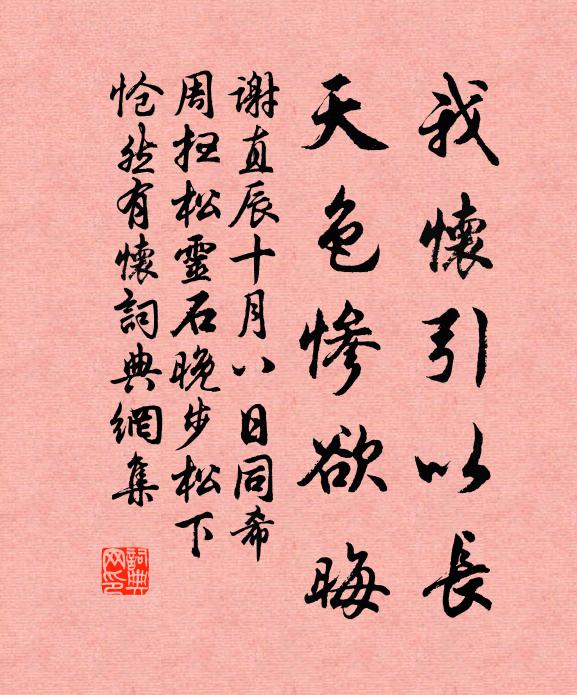 我懷引以長
天色慘欲晦
謝直辰十月八日同希
周扭松靈石晚步松下
愴然有懷詞典網集
詞典网印